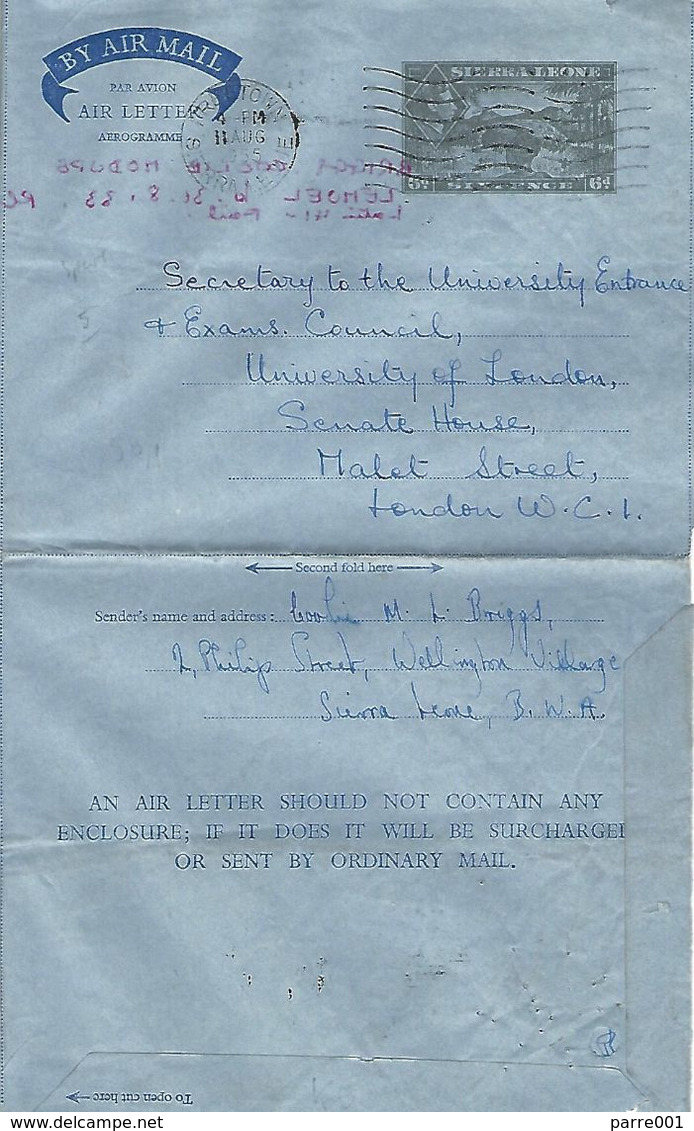 BY AIR MAIL
PAR AVION
AIR LETTER
AEROGRAMME
FREETOWN
4 - PM
11 AUG
SIERRA LEONE
6d SIXPENCE 6d
BRIGGS MODUPE
LEMUEL 31.8.38
Secretary to the University Entrance
& Exams. Council,
University of London,
Senate House,
Malet Street,
London W.C.1.
Second fold here
Sender's name and address: M. L. Briggs,
2, Philip Street, Wellington Village
Sierra Leone, B.W.A.
AN AIR LETTER SHOULD NOT CONTAIN ANY
ENCLOSURE; IF IT DOES IT WILL BE SURCHARGED
OR SENT BY ORDINARY MAIL.
To open cut here
delcampe.net
parre001